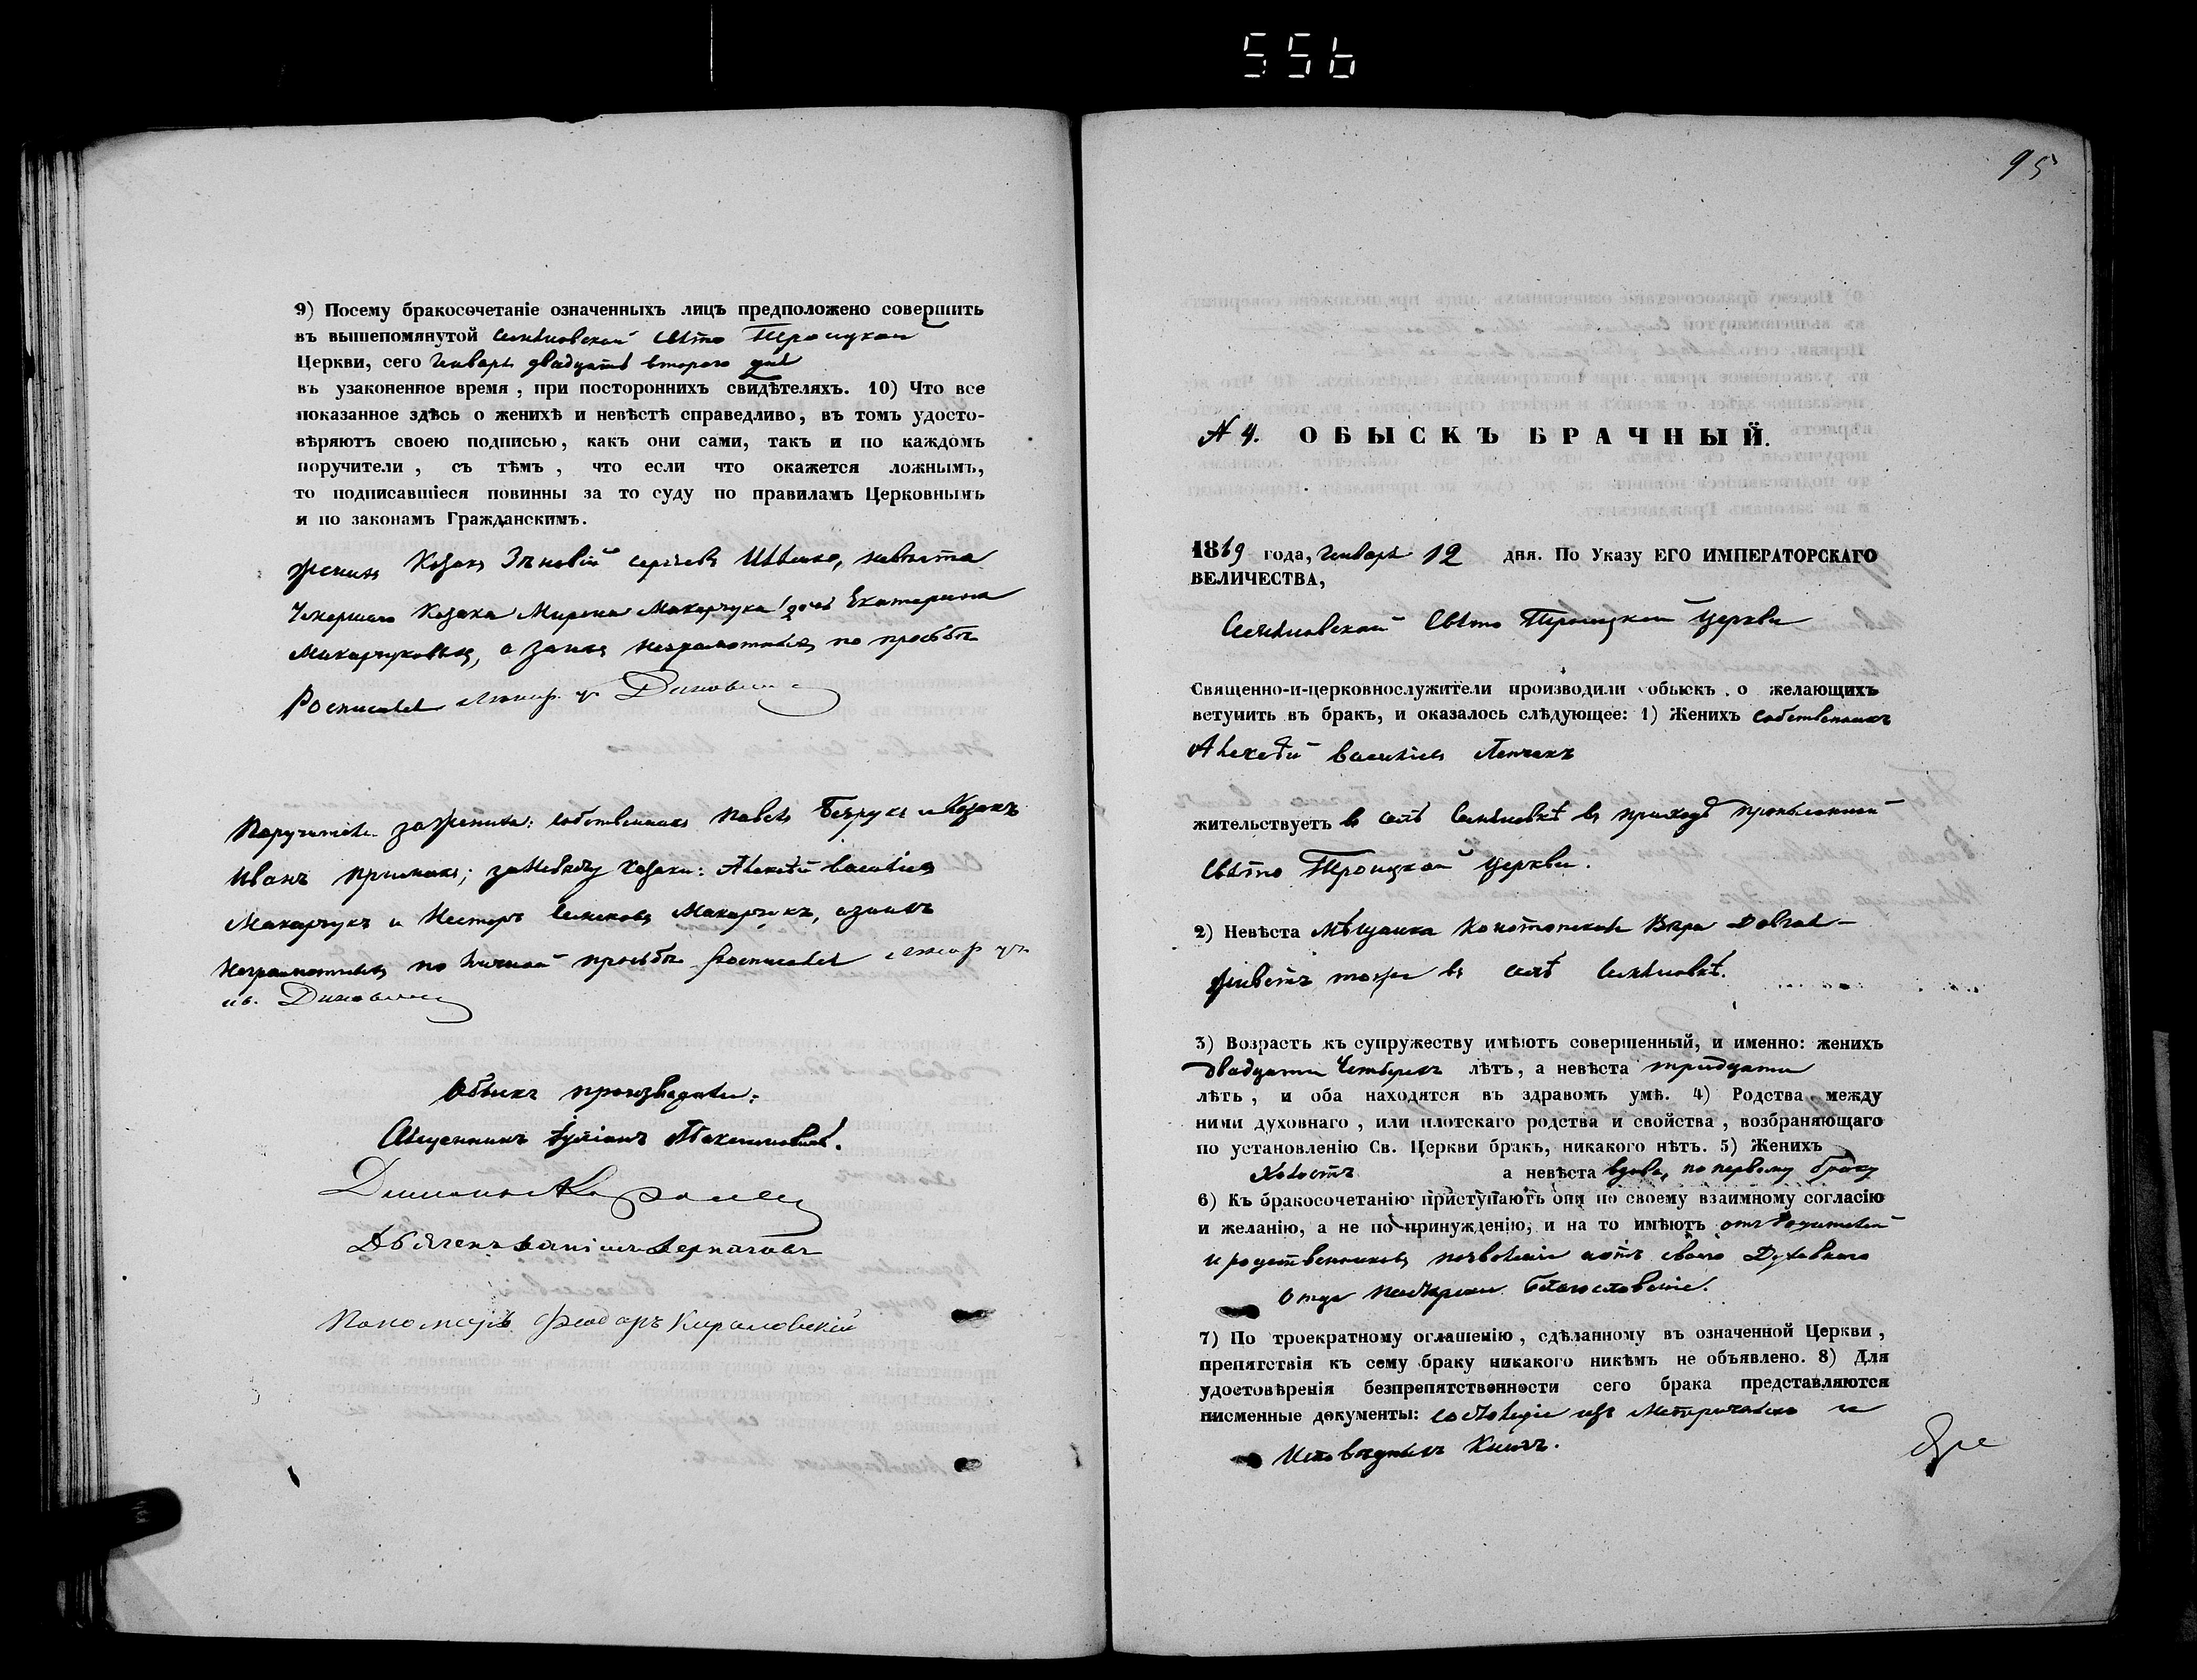 556
9) Посему бракосочетаніе означенныхъ лицъ предположено совершить
въ вышепомянутой Свято Троицкой
Церкви, сего Январь двадцать второго дня
въ узаконенное время, при постороннихъ свидѣтеляхъ. 10) Что все
показанное здѣсь о женихѣ и невѣстѣ справедливо, въ томъ удосто-
вѣряютъ своею подписью, какъ они сами, такъ и по каждомъ
поручители, съ тѣмъ, что если что окажется ложнымъ,
то подписавшіеся повинны за то суду по правиламъ Церковнымъ
и по законамъ Гражданскимъ.
Женихъ Козакъ Зѣновій невѣста
Умершаго Козака Мирона Макарчука дочь Екатерина
Макарчукова, а за нихъ неграмотныхъ по просьбѣ
Росписался
Поручители за жениха: собственникъ Павелъ Безрукъ и Козакъ
Иванъ за невѣсту Козаки: Алексѣй Василіевъ
Макарчукъ и Несторъ Макарчукъ, а за нихъ
неграмотныхъ по личной просьбѣ росписался
Обыскъ производили:
Священникъ
Дьячекъ
Пономарь Феодоръ
95
N 4. ОБЫСКЪ БРАЧНЫЙ.
1869 года, Январь 12 дня. По Указу ЕГО ИМПЕРАТОРСКАГО
ВЕЛИЧЕСТВА,
Свято Троицкой Церкви
Священно-и-церковнослужители производили обыскъ о желающихъ
вступить въ бракъ, и оказалось слѣдующее: 1) Женихъ собственникъ
Алексѣй Василіевъ
жительствуетъ въ селѣ въ приходѣ
Свято Троицкой Церкви.
2) Невѣста Мѣщанка Вѣра
живетъ тоже въ селѣ
3) Возрастъ къ супружеству имѣютъ совершенный, и именно: женихъ
двадцати четырехъ лѣтъ, а невѣста тридцати
лѣтъ, и оба находятся въ здравомъ умѣ. 4) Родства между
ними духовнаго, или плотскаго родства и свойства, возбраняющаго
по установленію Св. Церкви бракъ, никакого нѣтъ. 5) Женихъ
Холостъ а невѣста вдова, по первому браку
6) Къ бракосочетанію приступаютъ они по своему взаимному согласію
и желанію, а не по принужденію, и на то имѣютъ отъ родителей
и родственниковъ позволеніе и отъ своего Духовнаго
Отца Благословеніе.
7) По троекратному оглашенію, сдѣланному въ означенной Церкви,
препятствія къ сему браку никакого никѣмъ не объявлено. 8) Для
удостовѣренія безпрепятственности сего брака представляются
письменные документы: изъ Метрическихъ и
Исповѣдныхъ Книгъ.